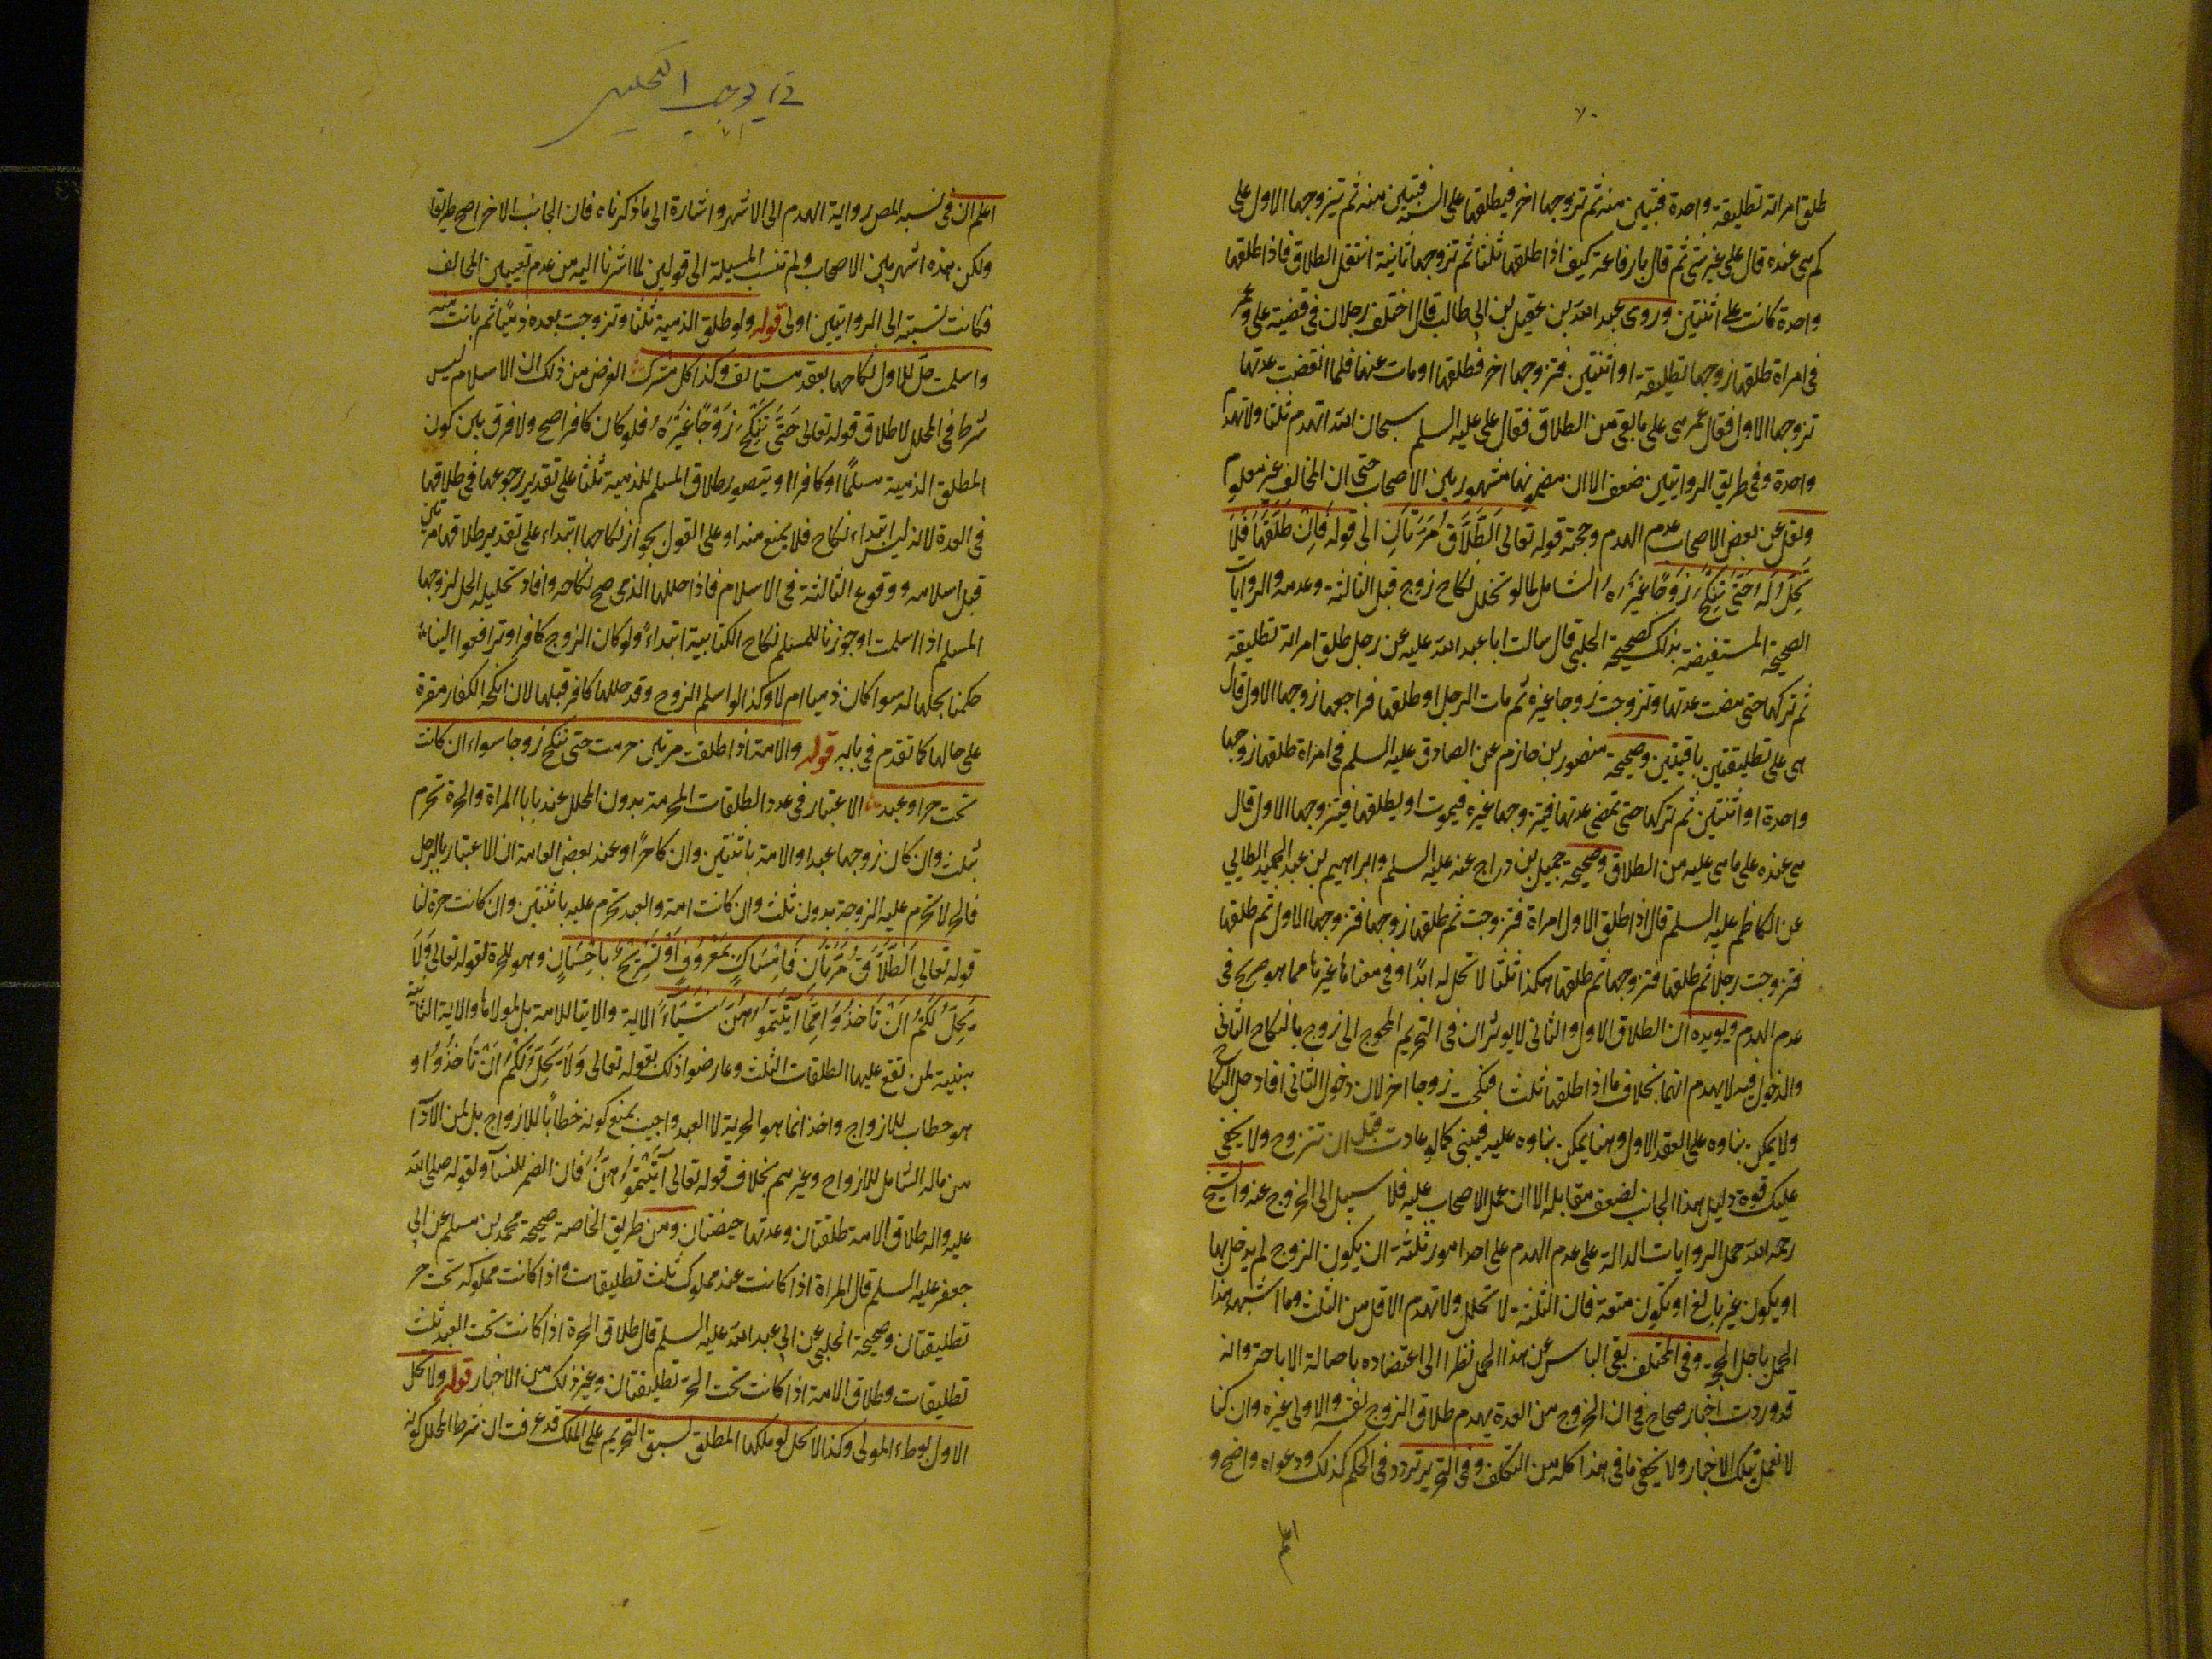 ٧٠
طلق امراته تطليقة واحدة فتبين منه ثم تزوجها اخر فيطلقها على السنة فتبين منه ثم يتزوجها الاول على
كم هى عنده قال على غير شى ثم قال يا رفاعة كيف اذا طلقها ثلثا ثم تزوجها ثانية استقبل الطلاق فاذا طلقها
واحدة كانت على اثنتين وروى عبد الله بن عقيل بن ابى طالب قال اختلف رجلان فى قضية على وعمر
فى امراة طلقها زوجها تطليقة او اثنتين فتزوجها اخر فطلقها او مات عنها فلما انقضت عدتها
تزوجها الاول فقال عمر هى على ما بقى من الطلاق فقال على عليه السلم سبحان الله ايهدم ثلثا ولا يهدم
واحدة وفى طريق الروايتين ضعف الا ان مضمونها مشهور بين الاصحاب حتى ان المخالف غير معلوم
ونقل عن بعض الاصحاب عدم الهدم وحجته قوله تعالى الطَّلَاقُ مَرَّتَانِ الى قوله فَاِنْ طَلَّقَهَا فَلَا
تَحِلُّ لَهُ حَتَّى تَنْكِحَ زَوْجًا غَيْرَهُ الشامل لما لو تخلل نكاح زوج قبل الثالثة وعدمه والروايات
الصحيحة المستفيضة بذلك كصحيحة الحلبى قال سالت ابا عبد الله عليه عن رجل طلق امراته تطليقة
ثم تركها حتى مضت عدتها وتزوجت زوجا غيره ثم مات الرجل او طلقها فراجعها زوجها الاول قال
هى على تطليقتين باقيتين وصحيحة منصور بن حازم عن الصادق عليه السلم فى امراة طلقها زوجها
واحدة او اثنتين ثم تركها حتى تمضى عدتها فيتزوجها غيره فيموت او يطلقها فيتزوجها الاول قال
هى عنده على ما هى عليه من الطلاق وصحيحة جميل بن دراج عنه عليه السلم وابراهيم بن عبد الحميد الطايى
عن الكاظم عليه السلم قال اذا طلق الاول امراة فتزوجت ثم طلقها زوجها فتزوجها الاول ثم طلقها
فتزوجت رجلا ثم طلقها فتزوجها ثم طلقها هكذا ثلثا لا تحل له ابدًا وفى معناها غيرها مما هو صريح فى
عدم الهدم ويويده ان الطلاق الاول والثانى لا يوثران فى التحريم المحوج الى زوج فالنكاح الثانى
والدخول فيه لا يهدم انهما بخلاف ما اذا طلقها ثلثا فنكحت زوجا اخر لان دخول الثانى افاد حل النكاح
ولا يمكن بناوه على العقد الاول وهنا يمكن بناوه عليه فيبنى كما لو عادت قبل ان تتزوج ولا يخفى
عليك قوة دليل هذا الجانب لضعف مقابله الا ان عمل الاصحاب عليه فلا سبيل الى الخروج عنه والشيخ
رحمه الله حمل الروايات الدالة على عدم الهدم على احد امور ثلثة ان يكون الزوج لم يدخل بها
او يكون غير بالغ او تكون متعة فان الثلثة لا تحلل ولا تهدم الاقل من الثلث وما اشبه هذا
الحمل باجل الحجة وفى المختلف نفى الباس عن هذا الحمل نظرا الى اعتضاده باصالة الاباحة وانه
قد وردت اخبار صحاح فى ان الخروج من العدة يهدم طلاق الزوج نفسه والاولى غيره وان كنا
لا نعمل بتلك الاخبار ولا يخفى ما فى هذا كله من التكلف وفى التحرير تردد فى الحكم كذلك ودعواه واضح و
اعلم
٧١
اعلم ان فى نسبه المص رواية الهدم الى الاشهر واشارة الى ما ذكرناه فان الجانب الاخر اصح طريقا
ولكن هذه اشهر بين الاصحاب ولم تنسب المسيلة الى قولين لما اشرنا اليه من عدم تعيين المخالف
فكانت نسبته الى الروايتين اولى قوله ولو طلق الذمية ثلثا وتزوجت بعده ذميًّا ثم بانت منه
واسلمت حل للاول نكاحها بعقد مستانف وكذا كل مشرك الغرض من ذلك ان الاسلام ليس
شرط فى المحلل لاطلاق قوله تعالى حَتَّى تَنْكِحَ زَوْجًا غَيْرَهُ فلو كان كافرا صح ولا فرق بين كون
المطلق الذمية مسلمًا او كافرا ويتصور طلاق المسلم للذمية ثلثا على تقدير رجوعها فى طلاقها
فى العدة لانه ليس ابتداء نكاح فلا يمنع منه او على القول بجواز نكاحها ابتداء على تقدير طلاقها مرتين
قبل اسلامه ووقوع الثالثة فى الاسلام فاذا حللها الذمى صح نكاحه وافاد تحليله الحل لزوجها
المسلم اذا اسلمت او جوزنا للمسلم نكاح الكتابية ابتداءً ولو كان الزوج كافرا وترافعوا الينا
حكمنا بحلها له سوا كان ذميا ام لا وكذا لو اسلم الزوج وقد حللها كافر قبلها لان انكحة الكفار مقرة
على حالها كما تقدم فى بابه قوله والامة اذا طلقت مرتين حرمت حتى تنكح زوجا سواء ان كانت
تحت حر او عبد الاعتبار فى عدد الطلقات المحرمة بدون المحلل عندنا بالمراة والحرة تحرم
بثلث وان كان زوجها عبدا والامة باثنتين وان كان حرًّا وعند بعض العامة ان الاعتبار بالرجل
فالحر لا تحرم عليه الزوجة بدون ثلث وان كانت امة والعبد تحرم عليه باثنتين وان كانت حرة لنا
قوله تعالى اَلطَّلَاقُ مَرَّتَانِ فَاِمْسَاكٌ بِمَعْرُوفٍ اَوْ تَسْرِيحٌ بِاِحْسَانٍ وهو للحرة لقوله تعالى وَلَا
يَحِلُّ لَكُمْ اَنْ تَاخُذُوا مِمَّا آتَيْتُمُوهُنَّ شَيْئًا الاية والايتا للامة بل لمولاها والاية الثانية
مبنية لمن تقع عليها الطلقات الثلث وعارضوا ذلك بقوله تعالى وَلَا يَحِلُّ لَكُمْ اَنْ تَاخُذُوا و
هو خطاب للازواج واخذ انما هو الحرية لا العبد واجيب بمنع كونه خطابًا للازواج بل لمن
من ماله الشامل للازواج وغيرهم بخلاف قوله تعالى آتَيْتُمُوهُنَّ فان الضمير للنسآ ولقوله صلى الله
عليه واله طلاق الامة طلقتان وعدتها حيضتان ومن طريق الخاصة صحيحة محمد بن مسلم عن ابى
جعفر عليه السلم قال المراة اذا كانت عند مملوك ثلث تطليقات واذا كانت مملوكة تحت حر
تطليقتان وصحيحة الحلبى عن ابى عبد الله عليه السلم قال طلاق الحرة اذا كانت تحت العبد ثلث
تطليقات وطلاق الامة اذا كانت تحت الحر تطليقتان وغير ذلك من الاخبار قوله ولا تحل
الاول بوطء المولى وكذا لا تحل لو ملكها المطلق لسبق التحريم على الملك قد عرفت ان شرط المحلل كونه